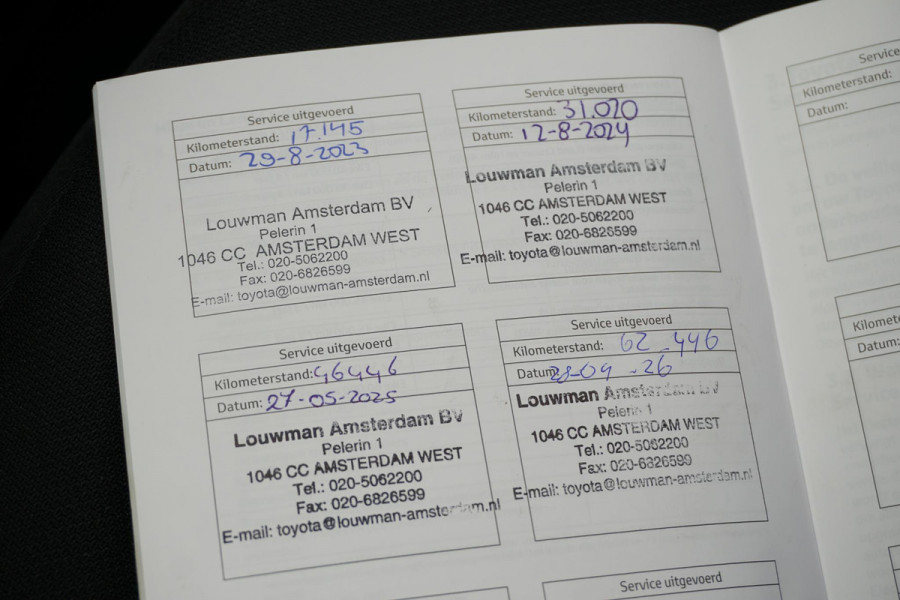 Service uitgevoerd
Kilometerstand: 17.145
Datum: 29-8-2023
Louwman Amsterdam BV
Pelerin 1
1046 CC AMSTERDAM WEST
Tel.: 020-5062200
Fax: 020-6826599
E-mail: toyota@louwman-amsterdam.nl
Service uitgevoerd
Kilometerstand: 31.020
Datum: 12-8-2024
Louwman Amsterdam BV
Pelerin 1
1046 CC AMSTERDAM WEST
Tel.: 020-5062200
Fax: 020-6826599
E-mail: toyota@louwman-amsterdam.nl
Service uitgevoerd
Kilometerstand: 46446
Datum: 27-05-2025
Louwman Amsterdam BV
Pelerin 1
1046 CC AMSTERDAM WEST
Tel.: 020-5062200
Fax: 020-6826599
E-mail: toyota@louwman-amsterdam.nl
Service uitgevoerd
Kilometerstand: 62.446
Datum: 28-04-26
Louwman Amsterdam BV
Pelerin 1
1046 CC AMSTERDAM WEST
Tel.: 020-5062200
Fax: 020-6826599
E-mail: toyota@louwman-amsterdam.nl
Service uitgevoerd
Service
Kilometerstand:
Datum:
Datum: